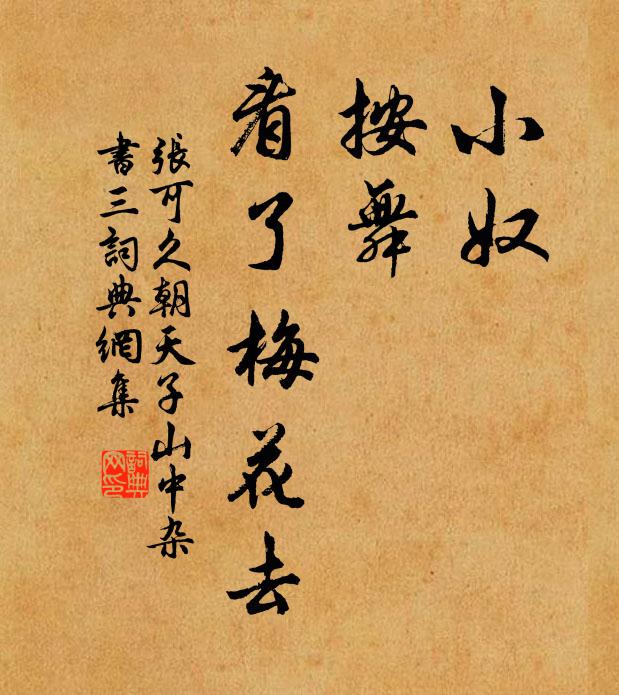 小奴
按舞
看了梅花去
張可久朝天子山中杂
書三詞典網集
詞典网印